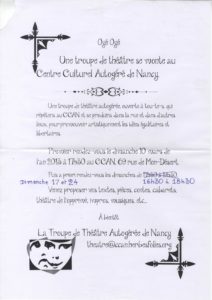 Oyé Oyé
Une troupe de théâtre se monte au
Centre Culturel Autogéré de Nancy.
Une troupe de théâtre autogérée, ouverte à tou-te-s, qui
répètera au CCAN et se produira dans la rue et dans d'autres
lieux, pour promouvoir artistiquement les idées égalitaires et
libertaires.
Premier rendez-vous le dimanche 10 mars de
l'an 2013 à 17h30 au CCAN, 69 rue de Mon-Désert.
Puis à premier rendez-vous les dimanches de
Dimanche 17 et 24 16h30 à 18h30
Venez proposer vos textes, pièces, contes, cabarets,
théâtre de l'opprimé, impros, musiques, etc...
A bientôt
La Troupe de Théâtre Autogérée de Nancy